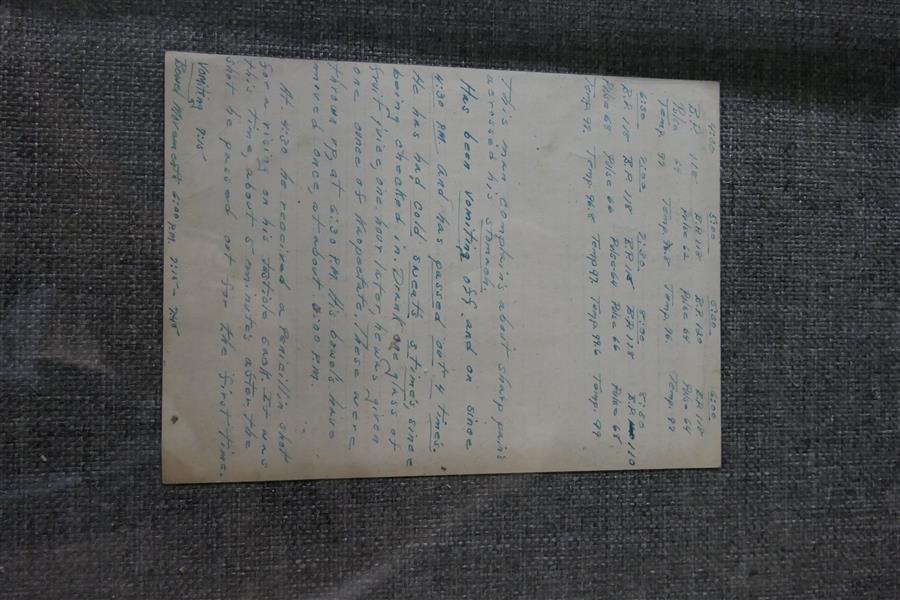 4:30 5:00 5:30 6:00
B.P. 118 B.P. 118 B.P. 120 B.P. 118
Pulse Pulse 62 Pulse 64 Pulse 64
Temp. Temp. 96.8 Temp. 96. Temp. 97
6:30 7:00 8:30
B.P. 118 B.P. 118 B.P. 118 B.P. 118 B.P. 110
Pulse 68 Pulse 60 Pulse-64 Pulse 66 Pulse 68
Temp. 97. Temp. 96.8 Temp 97. Temp 97.6 Temp. 97
This man complains about sharp pains
acrossed his stomach.
Has been vomiting off and on since
4:30 P.M. and has passed out 4 times.
He has had cold sweats 5 times, since
being checked in. Drank one glass of
fruit juice, one hour later, he was given
one ounce of Kaopectate. These were
thrown up at 6:30 P.M. His bowels have
moved once, at about 6:00 P.M.
At 4:20 he received a penicillin shot
for a rising on his testicle sack. It was
this time, about 5 minutes after the
shot he passed out for the first time.
Vomiting 7:15
Bowel Movements 6:00 P.M. 7:15-